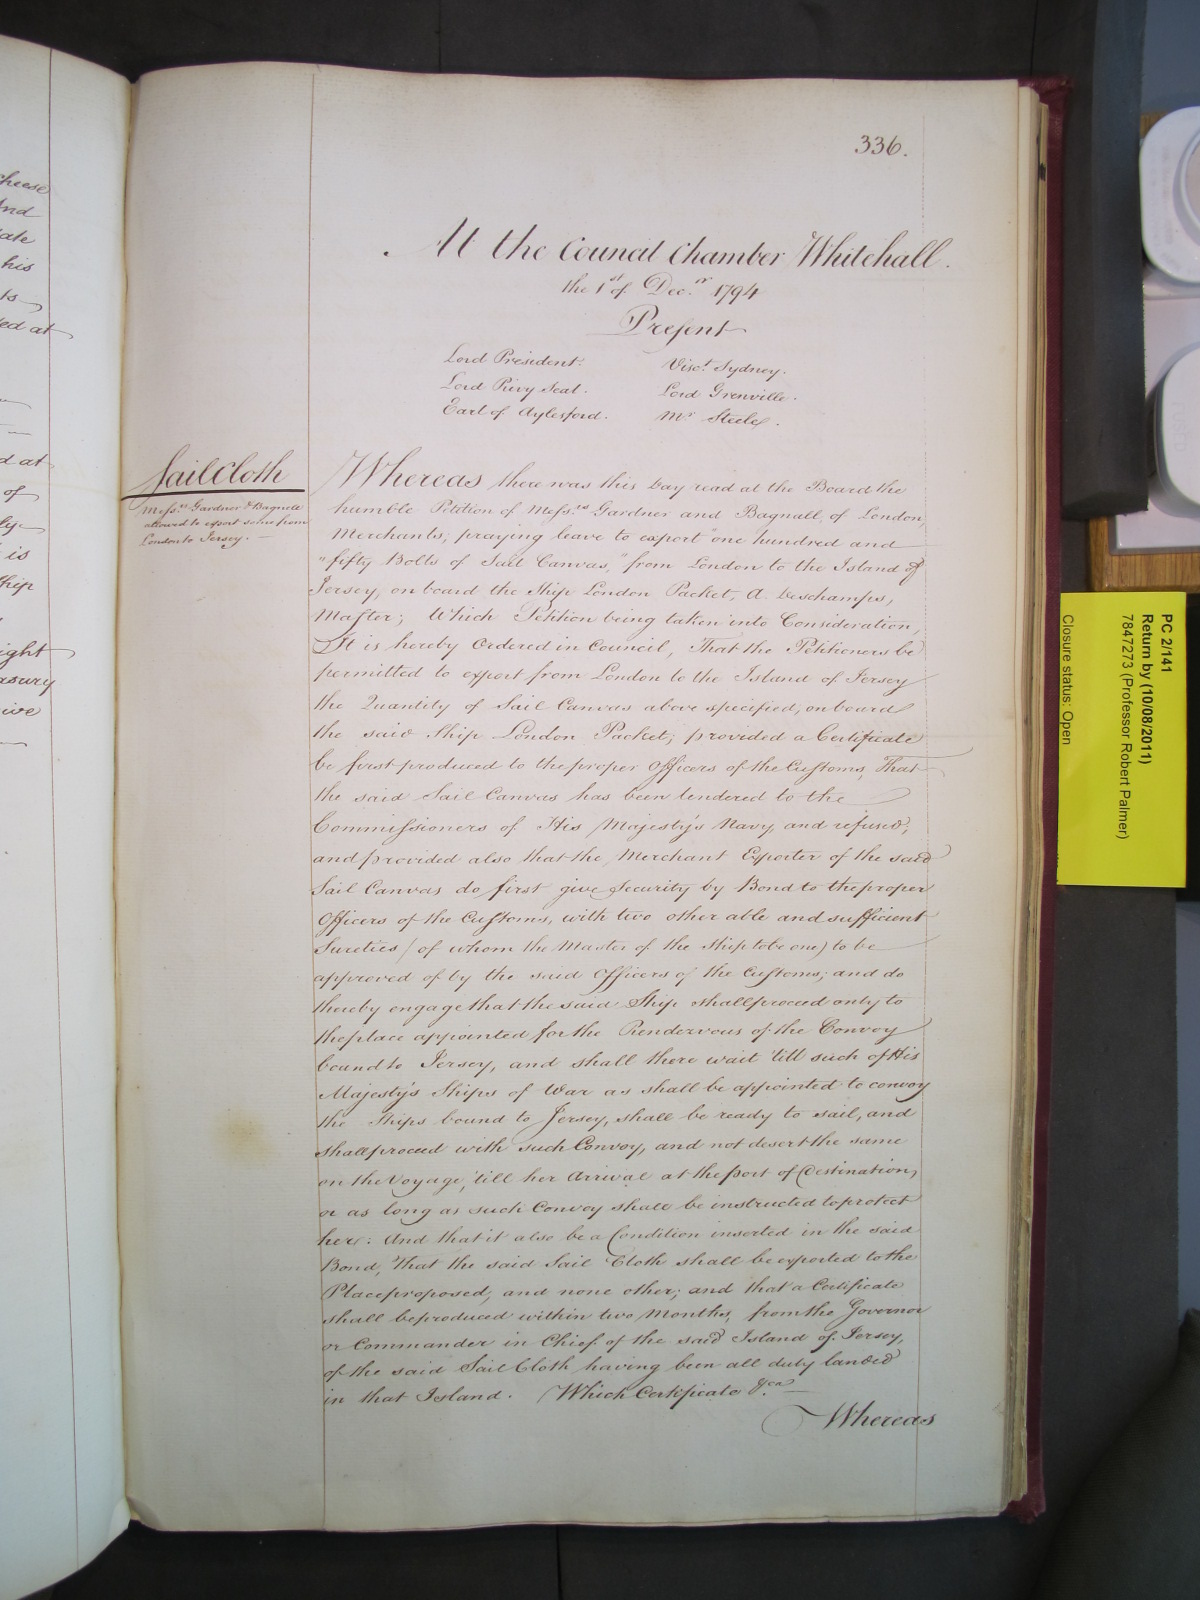 cheese
And
ate
his
ts
ed at
d at
of
ly
is
ship
ight
asury
ive
336.
At the Council Chamber Whitehall.
the 1st of Decr. 1794
Present
Lord President. Visct. Sydney.
Lord Privy Seal. Lord Grenville.
Earl of Aylesford. Mr. Steele.
Sail Cloth
Messrs. Gardner & Bagnall
allowed to export some from
London to Jersey.
Whereas there was this Day read at the Board the
humble Petition of Messrs. Gardner and Bagnall, of London,
Merchants; praying leave to export "one hundred and
"fifty Bolts of Sail Canvas," from London to the Island of
Jersey, on board the Ship London Packet, A. Deschamps,
Master; Which Petition being taken into Consideration,
It is hereby Ordered in Council, That the Petitioners be
permitted to export from London to the Island of Jersey
the Quantity of Sail Canvas above specified, on board
the said Ship London Packet; provided a Certificate
be first produced to the proper Officers of the Customs, That
the said Sail Canvas has been tendered to the
Commissioners of His Majesty's Navy, and refused;
and provided also that the Merchant Exporter of the said
Sail Canvas do first give Security by Bond to the proper
Officers of the Customs, with two other able and sufficient
Sureties (of whom the Master of the Ship to be one) to be
approved of by the said Officers of the Customs; and do
thereby engage that the said Ship shall proceed only to
the place appointed for the Rendezvous of the Convoy
bound to Jersey, and shall there wait 'till such of His
Majesty's Ships of War as shall be appointed to convoy
the Ships bound to Jersey, shall be ready to sail, and
shall proceed with such Convoy, and not desert the same
on the Voyage, 'till her Arrival at the port of Destination,
or as long as such Convoy shall be instructed to protect
her: And that it also be a Condition inserted in the said
Bond, That the said Sail Cloth shall be exported to the
Place proposed, and none other; and that a Certificate
shall be produced within two Months, from the Governor
or Commander in Chief of the said Island of Jersey,
of the said Sail Cloth having been all duly landed
in that Island. Which Certificate &ca.
Whereas
PC 2/141
Return by (10/08/2011)
7847273 (Professor Robert Palmer)
Closure status: Open